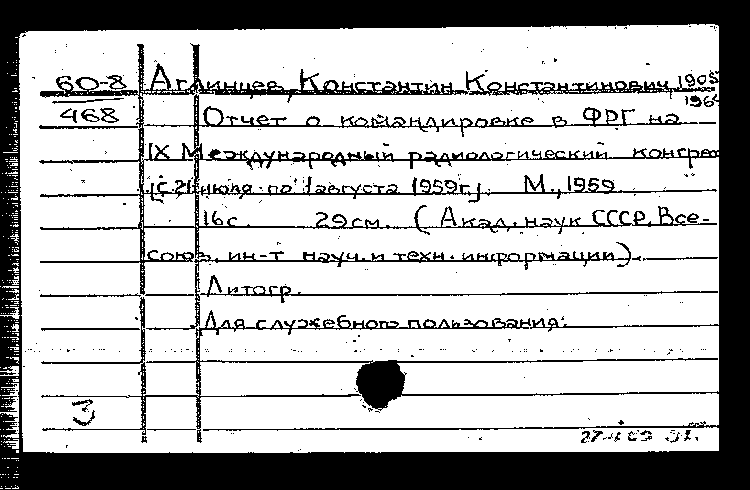 60-8
468
Аглинцев, Константин Константинович 1905
196
Отчет о командировке в ФРГ на
IX Международный радиологический конгрес
[с 21 июля по 1 августа 1959г.]. М., 1959
16с. 29см. (Акад. наук СССР. Все-
союз. ин-т науч. и техн. информации).
Литогр.
Для служебного пользования.
3